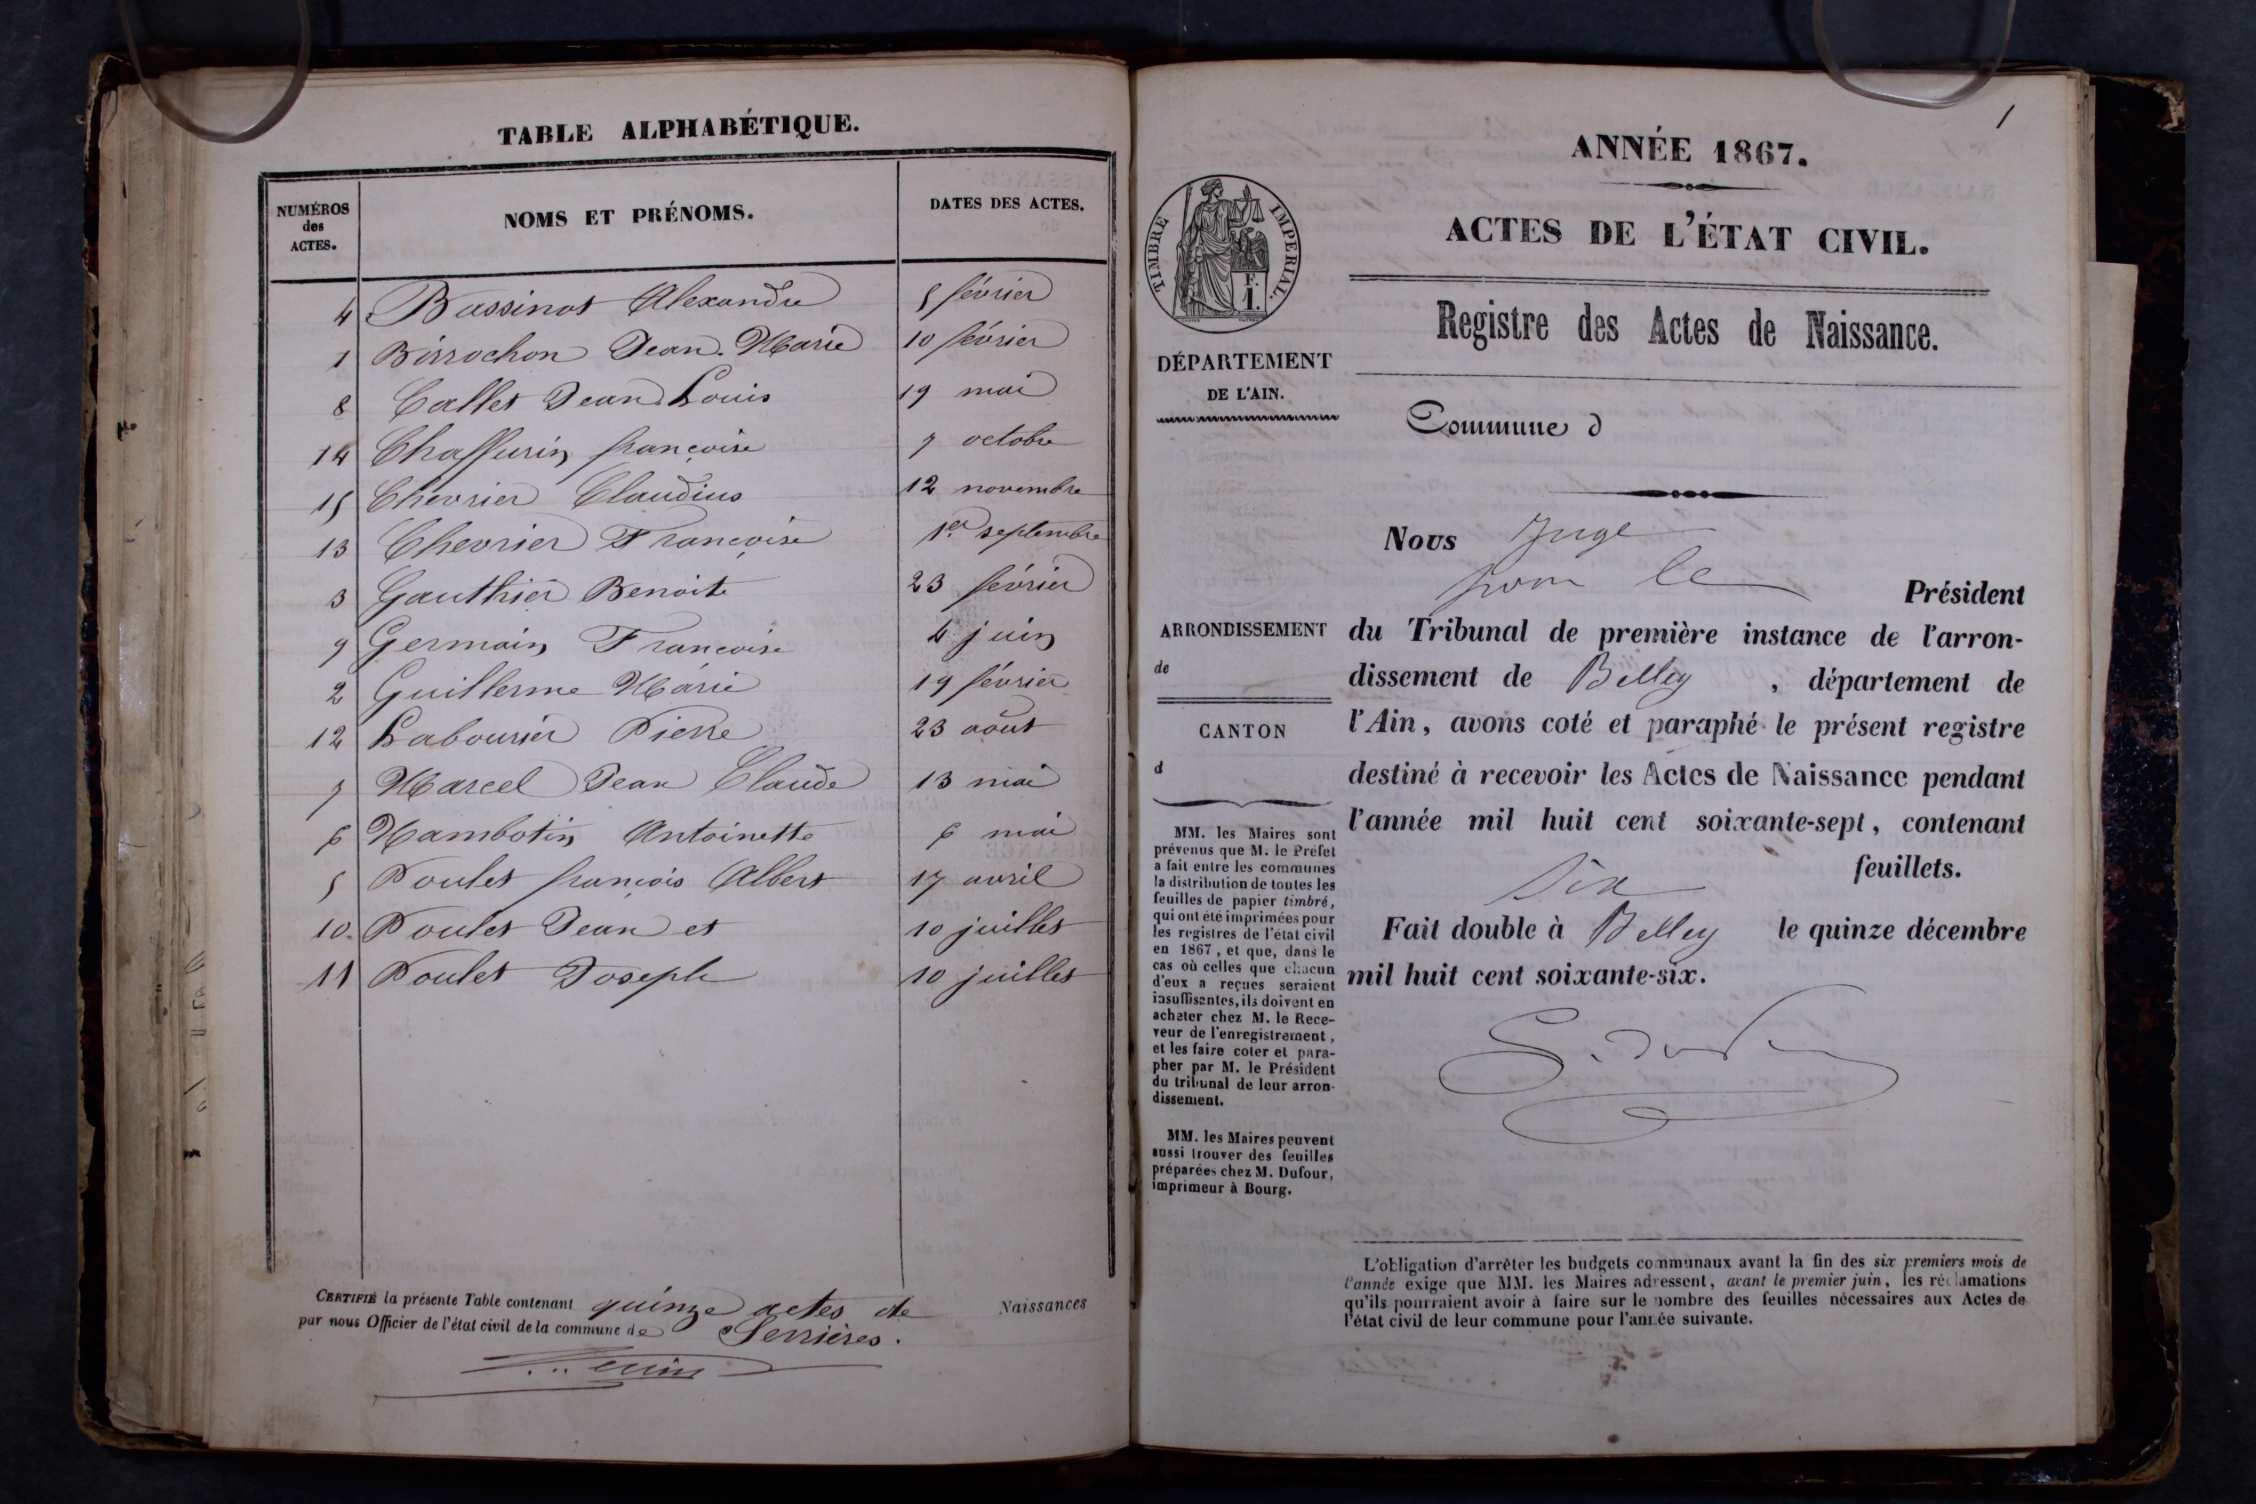 TABLE ALPHABÉTIQUE.
NUMÉROS des ACTES.
NOMS ET PRÉNOMS.
DATES DES ACTES.
4 Bassinot Alexandre 5 février
1 Birrochon Jean-Marie 10 février
8 Callet Jean Louis 19 mai
14 Chaffurin françoise 7 octobre
15 Chevrier Claudius 12 novembre
13 Chevrier Françoise 1er septembre
3 Gauthier Benoite 23 février
9 Germain Françoise 4 juin
2 Guillerme Marie 19 février
12 Labourier Pierre 23 août
7 Marcel Jean Claude 13 mai
6 Mambotin Antoinette 6 mai
5 Poulet françois Albert 17 avril
10. Poulet Jean et 10 juillet
11 Poulet Joseph 10 juillet
CERTIFIÉ la présente Table contenant quinze actes de Naissances
par nous Officier de l'état civil de la commune de Serrières.
1
ANNÉE 1867.
ACTES DE L'ÉTAT CIVIL.
TIMBRE IMPERIAL.
F.
1.
Registre des Actes de Naissance.
DÉPARTEMENT
DE L'AIN.
Commune d
Nous Juge
pour le
Président
ARRONDISSEMENT
de
CANTON
d
du Tribunal de première instance de l'arron-
dissement de Belley, département de
l'Ain, avons coté et paraphé le présent registre
destiné à recevoir les Actes de Naissance pendant
l'année mil huit cent soixante-sept, contenant
six feuillets.
Fait double à Belley le quinze décembre
mil huit cent soixante-six.
MM. les Maires sont
prévenus que M. le Préfet
a fait entre les communes
la distribution de toutes les
feuilles de papier timbré,
qui ont été imprimées pour
les registres de l'état civil
en 1867, et que, dans le
cas où celles que chacun
d'eux a reçues seraient
insuffisantes, ils doivent en
acheter chez M. le Rece-
veur de l'enregistrement,
et les faire coter et para-
pher par M. le Président
du tribunal de leur arron-
dissement.
MM. les Maires peuvent
aussi trouver des feuilles
préparées chez M. Dufour,
imprimeur à Bourg.
L'obligation d'arrêter les budgets communaux avant la fin des six premiers mois de
l'année exige que MM. les Maires adressent, avant le premier juin, les réclamations
qu'ils pourraient avoir à faire sur le nombre des feuilles nécessaires aux Actes de
l'état civil de leur commune pour l'année suivante.